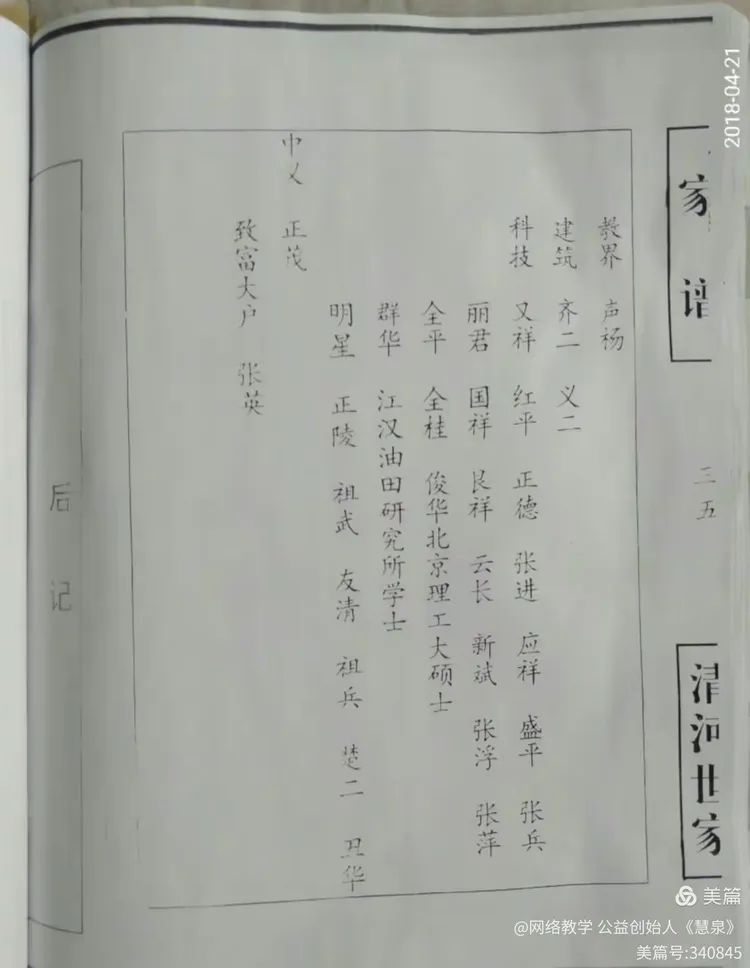 家谱
三五
清河世家
教界 声杨
建筑 齐二 义二
科技 又祥 红平 正德 张进 应祥 盛平 张兵
丽君 国祥 艮祥 云长 新斌 张浮 张萍
全平 全桂 俊华北京理工大硕士
群华 江汉油田研究所学士
明星 正陵 祖武 友清 祖兵 楚二 丑华
中义 正茂
致富大户 张英
后记
2018-04-21
美篇
@网络教学 公益创始人《慧泉》
美篇号:340845